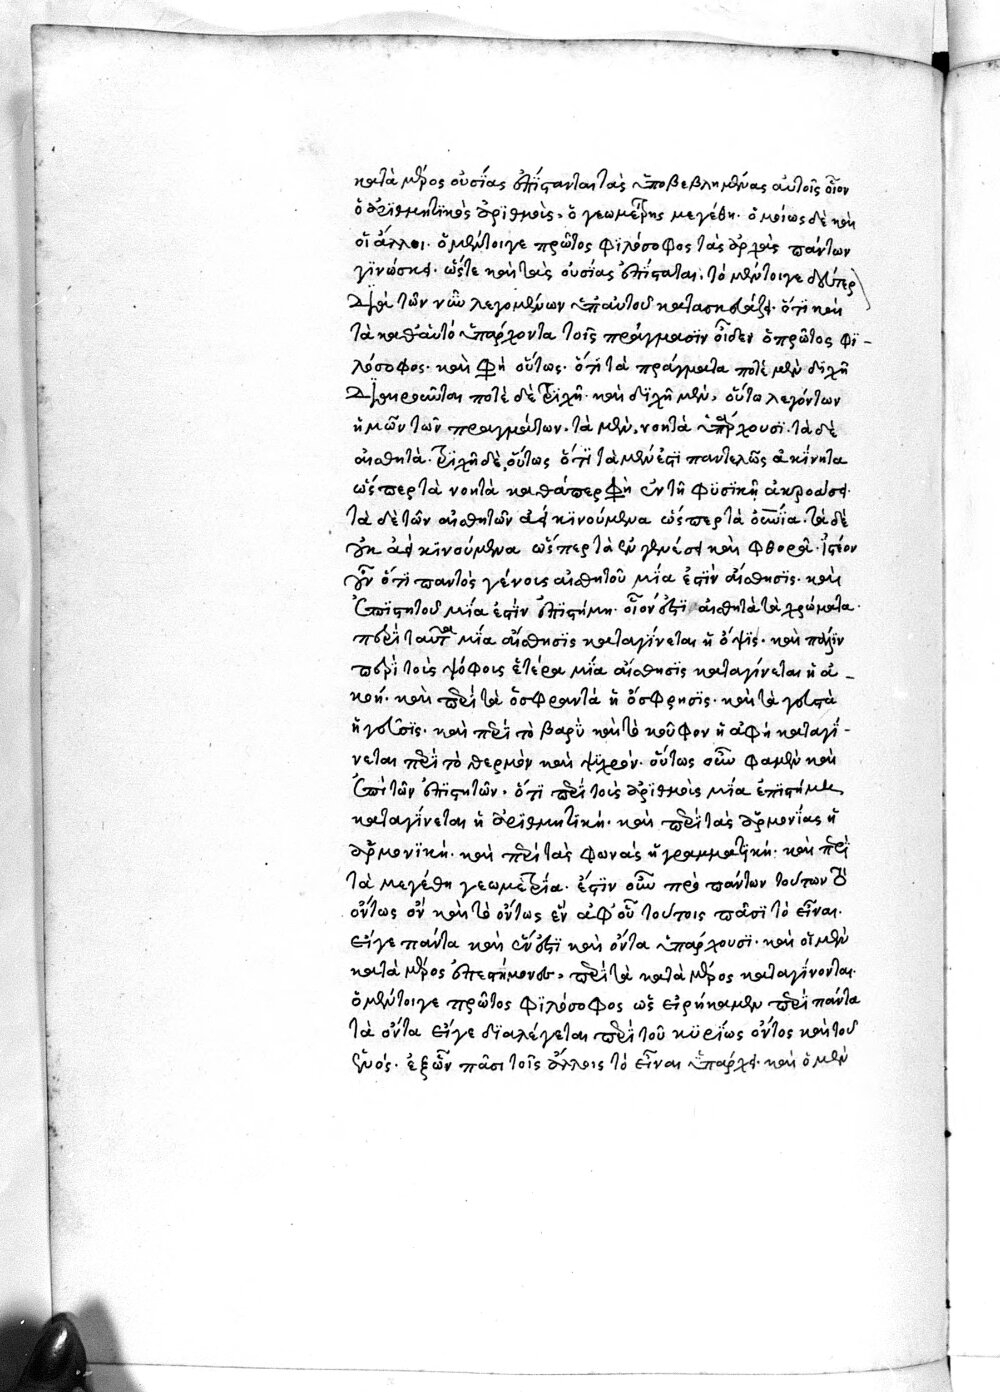 κατὰ μέρος οὐσίας ἐπίστανται τὰς ὑποβεβλημένας αὐτοῖς οἷον
ὁ ἀριθμητικὸς ἀριθμοὺς, ὁ γεωμέτρης μεγέθη· ὁμοίως δὲ καὶ
οἱ ἄλλοι· ὁ μέντοιγε πρῶτος φιλόσοφος τὰς ἀρχὰς πάντων
γινώσκει· ὥστε καὶ τὰς οὐσίας ἐπίσταται· τὸ μέντοιγε δεύτερον
διὰ τῶν νῦν λεγομένων ὑπ' αὐτοῦ κατασκευάζει· ὅτι καὶ
τὰ καθ' αὑτὸ ὑπάρχοντα τοῖς πράγμασιν οἶδεν ὁ πρῶτος φι-
λόσοφος· καὶ φησὶ οὕτως· ὅτι τὰ πράγματα ποτὲ μὲν διχῇ
διαιροῦνται ποτὲ δὲ τριχῇ· καὶ διχῇ μὲν, οὕτω λεγόντων
ἡμῶν τῶν πραγμάτων, τὰ μὲν, νοητὰ ὑπάρχουσι· τὰ δὲ
αἰσθητά· τριχῇ δὲ, οὕτως ὅτι τὰ μὲν ἐστὶ παντελῶς ἀκίνητα
ὥσπερ τὰ νοητὰ καθάπερ φησὶ ἐν τῇ φυσικῇ ἀκροάσει·
τὰ δὲ τῶν αἰσθητῶν ἀεὶ κινούμενα ὥσπερ τὰ οὐράνια· τὰ δὲ
οὐκ ἀεὶ κινούμενα ὥσπερ τὰ ἐν γενέσει καὶ φθορᾷ· ἰστέον
οὖν ὅτι παντὸς γένους αἰσθητοῦ μία ἐστὶν αἴσθησις· καὶ
ἐπιστητοῦ μία ἐστὶν ἐπιστήμη· οἷον ἐστὶ αἰσθητὰ τὰ χρώματα·
περὶ ταῦτα μία αἴσθησις καταγίνεται ἡ ὄψις· καὶ πάλιν
περὶ τοὺς ψόφους ἑτέρα μία αἴσθησις καταγίνεται ἡ ἀ-
κοή· καὶ περὶ τὰ ὀσφραντὰ ἡ ὄσφρησις· καὶ τὰ γευστὰ
ἡ γεῦσις· καὶ περὶ τὸ βαρὺ καὶ τὸ κοῦφον ἡ ἁφὴ καταγί-
νεται περὶ τὸ θερμὸν καὶ ψυχρόν· οὕτως οὖν φαμὲν καὶ
ἐπὶ τῶν ἐπιστητῶν, ὅτι περὶ τοὺς ἀριθμοὺς μία ἐπιστήμη
καταγίνεται ἡ ἀριθμητική· καὶ περὶ τὰς ἁρμονίας ἡ
ἁρμονική· καὶ περὶ τὰς φωνὰς ἡ γραμματική· καὶ περὶ
τὰ μεγέθη γεωμετρία· ἔστιν οὖν πρὸ πάντων τούτων τὸ
ὄντως ὂν καὶ τὸ ὄντως ἓν ἀφ' οὗ τούτοις πᾶσι τὸ εἶναι·
εἴγε πάντα καὶ ἕν ἐστι καὶ ὄντα ὑπάρχουσι· καὶ οἱ μὲν
κατὰ μέρος ἐπιστήμονες, περὶ τὰ κατὰ μέρος καταγίνονται·
ὁ μέντοιγε πρῶτος φιλόσοφος ὡς εἰρήκαμεν περὶ πάντα
τὰ ὄντα εἴγε διαλέγεται περὶ τοῦ κυρίως ὄντος καὶ τοῦ
ἑνός· ἐξ ὧν πᾶσι τοῖς ἄλλοις τὸ εἶναι ὑπάρχει· καὶ ὁ μὲν